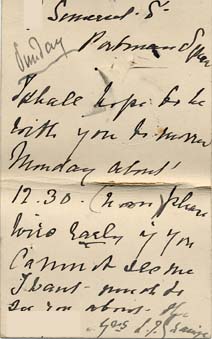 Somerset St
Portman Square
Sunday
I shall hope to be
with you tomorrow
Monday about
12.30. (noon) please
wire early if you
cannot see me
I want much to
see you about